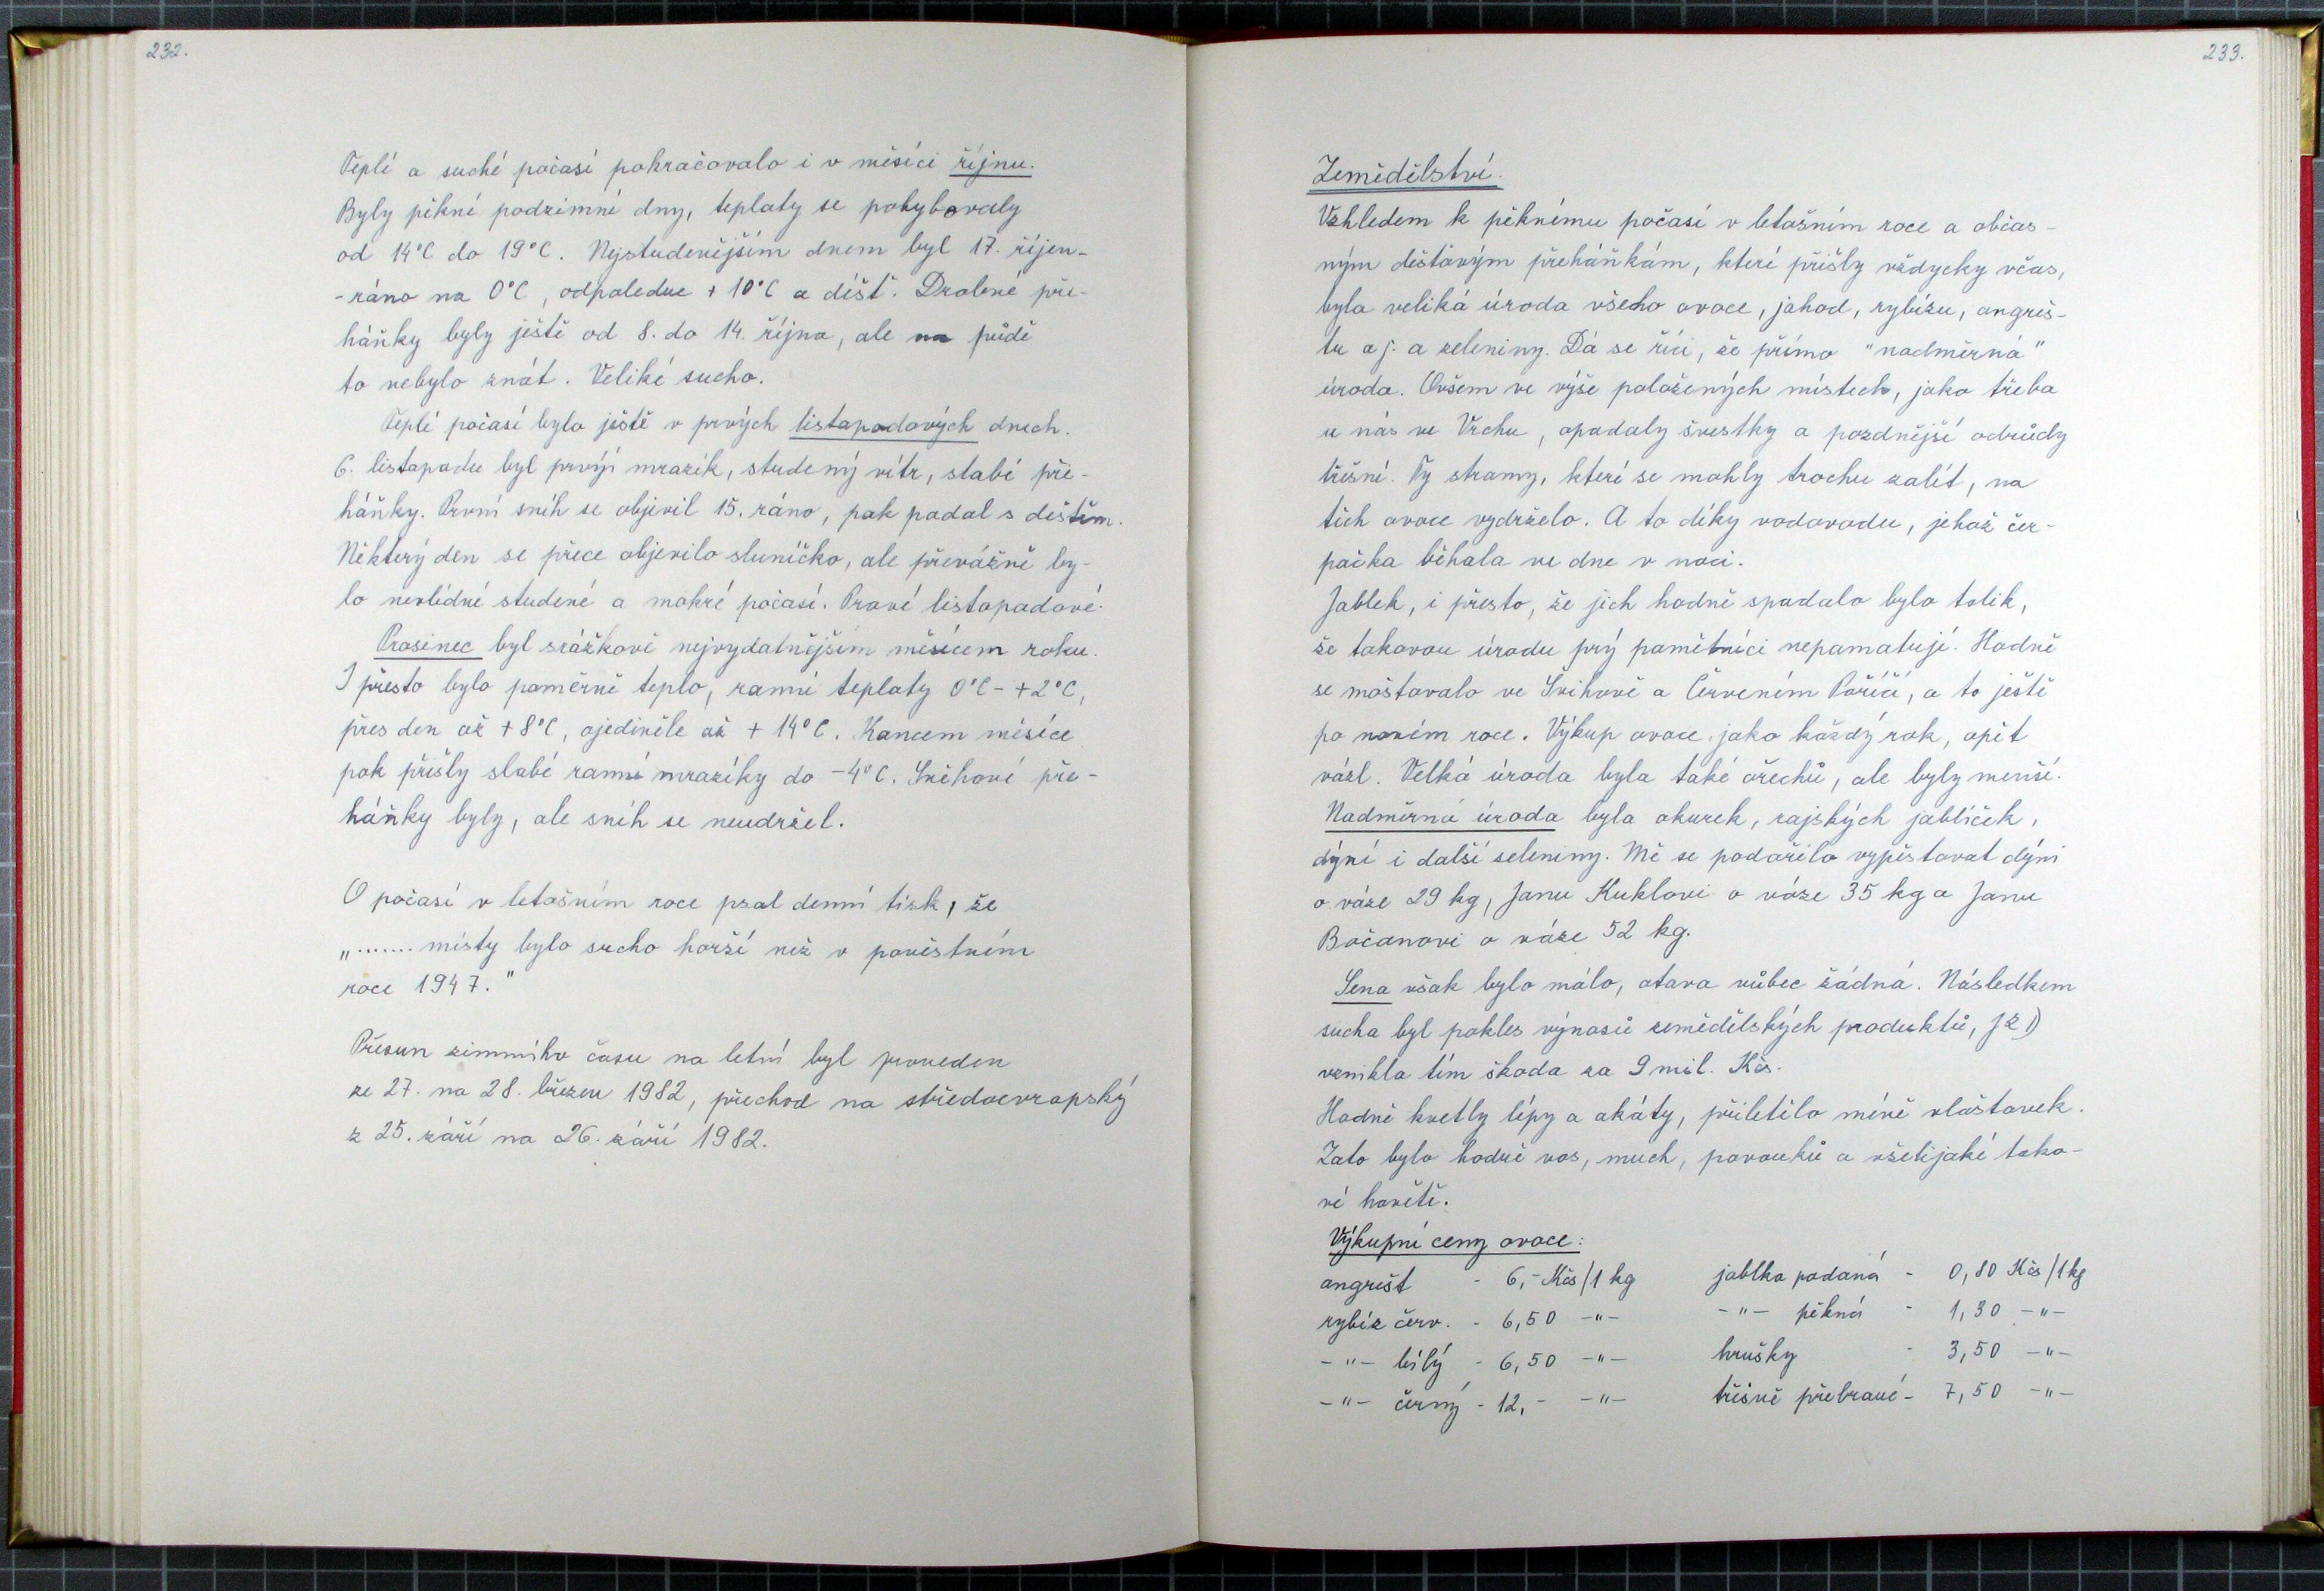 232.
Teplé a suché počasí pokračovalo i v měsíci říjnu.
Byly pěkné podzimní dny, teploty se pohybovaly
od 14°C do 19°C. Nejstudenějším dnem byl 17. říjen-
-ráno na 0°C, odpoledne + 10°C a déšť. Drobné pře-
háňky byly ještě od 8. do 14. října, ale na půdě
to nebylo znát. Veliké sucho.
Teplé počasí bylo ještě v prvých listopadových dnech.
6. listopadu byl prvýi mrazík, studený vítr, slabé pře-
háňky. První sníh se objevil 15. ráno, pak padal s deštěm.
Některý den se přece objevilo sluníčko, ale převážně by-
lo nevlídné studené a mokré počasí. Pravé listopadové.
Prosinec byl srážkově nejvydatnějším měsícem roku.
I přesto bylo poměrně teplo, ranní teploty 0°C - +2°C,
přes den až +8°C, ojediněle až + 14°C. Koncem měsíce
pak přišly slabé ranní mrazíky do -4°C. Sněhové pře-
háňky byly, ale sníh se neudržel.
O počasí v letošním roce psal denní tisk, že
„....... místy bylo sucho horší než v pověstném
roce 1947."
Přesun zimního času na letní byl proveden
ze 27. na 28. březen 1982, přechod na středoevropský
z 25. září na 26. září 1982.
233.
Zemědělství.
Vzhledem k pěknému počasí v letošním roce a občas-
ným dešťovým přeháňkám, které přišly vždycky včas,
byla veliká úroda všeho ovoce, jahod, rybízu, angreš-
tu aj. a zeleniny. Dá se říci, že přímo "nadměrná"
úroda. Ovšem ve výše položených místech, jako třeba
u nás ve Vrchu, opadaly švestky a pozdnější odrůdy
třešní. Ty stromy, které se mohly trochu zalít, na
těch ovoce vydrželo. A to díky vodovodu, jehož čer-
pačka běhala ve dne v noci.
Jablek, i přesto, že jich hodně spadalo bylo tolik,
že takovou úrodu prý pamětníci nepamatují. Hodně
se moštovalo ve Švihově a Červeném Poříčí, a to ještě
po novém roce. Výkup ovoce, jako každý rok, opět
vázl. Velká úroda byla také ořechů, ale byly menší.
Nadměrná úroda byla okurek, rajských jablíček,
dýní i další zeleniny. Mě se podařilo vypěstovat dýni
o váze 29 kg, Janu Kuklovi o váze 35 kg a Janu
Bočanovi o váze 52 kg.
Sena však bylo málo, otava vůbec žádná. Následkem
sucha byl pokles výnosů zemědělských produktů, JZD
vznikla tím škoda za 9 mil. Kčs.
Hodně kvetly lípy a akáty, přiletělo méně vlaštovek.
Zato bylo hodně vos, much, pavouků a všelijaké tako-
vé havětě.
Výkupní ceny ovoce:
angrešt - 6,- Kčs/1 kg jablka padaná - 0,80 Kčs/1kg
rybíz červ. - 6,50 -"- -"- pěkná - 1,30 -"-
-"- bílý - 6,50 -"- hrušky - 3,50 -"-
-"- černý - 12,- -"- třešně přebrané - 7,50 -"-